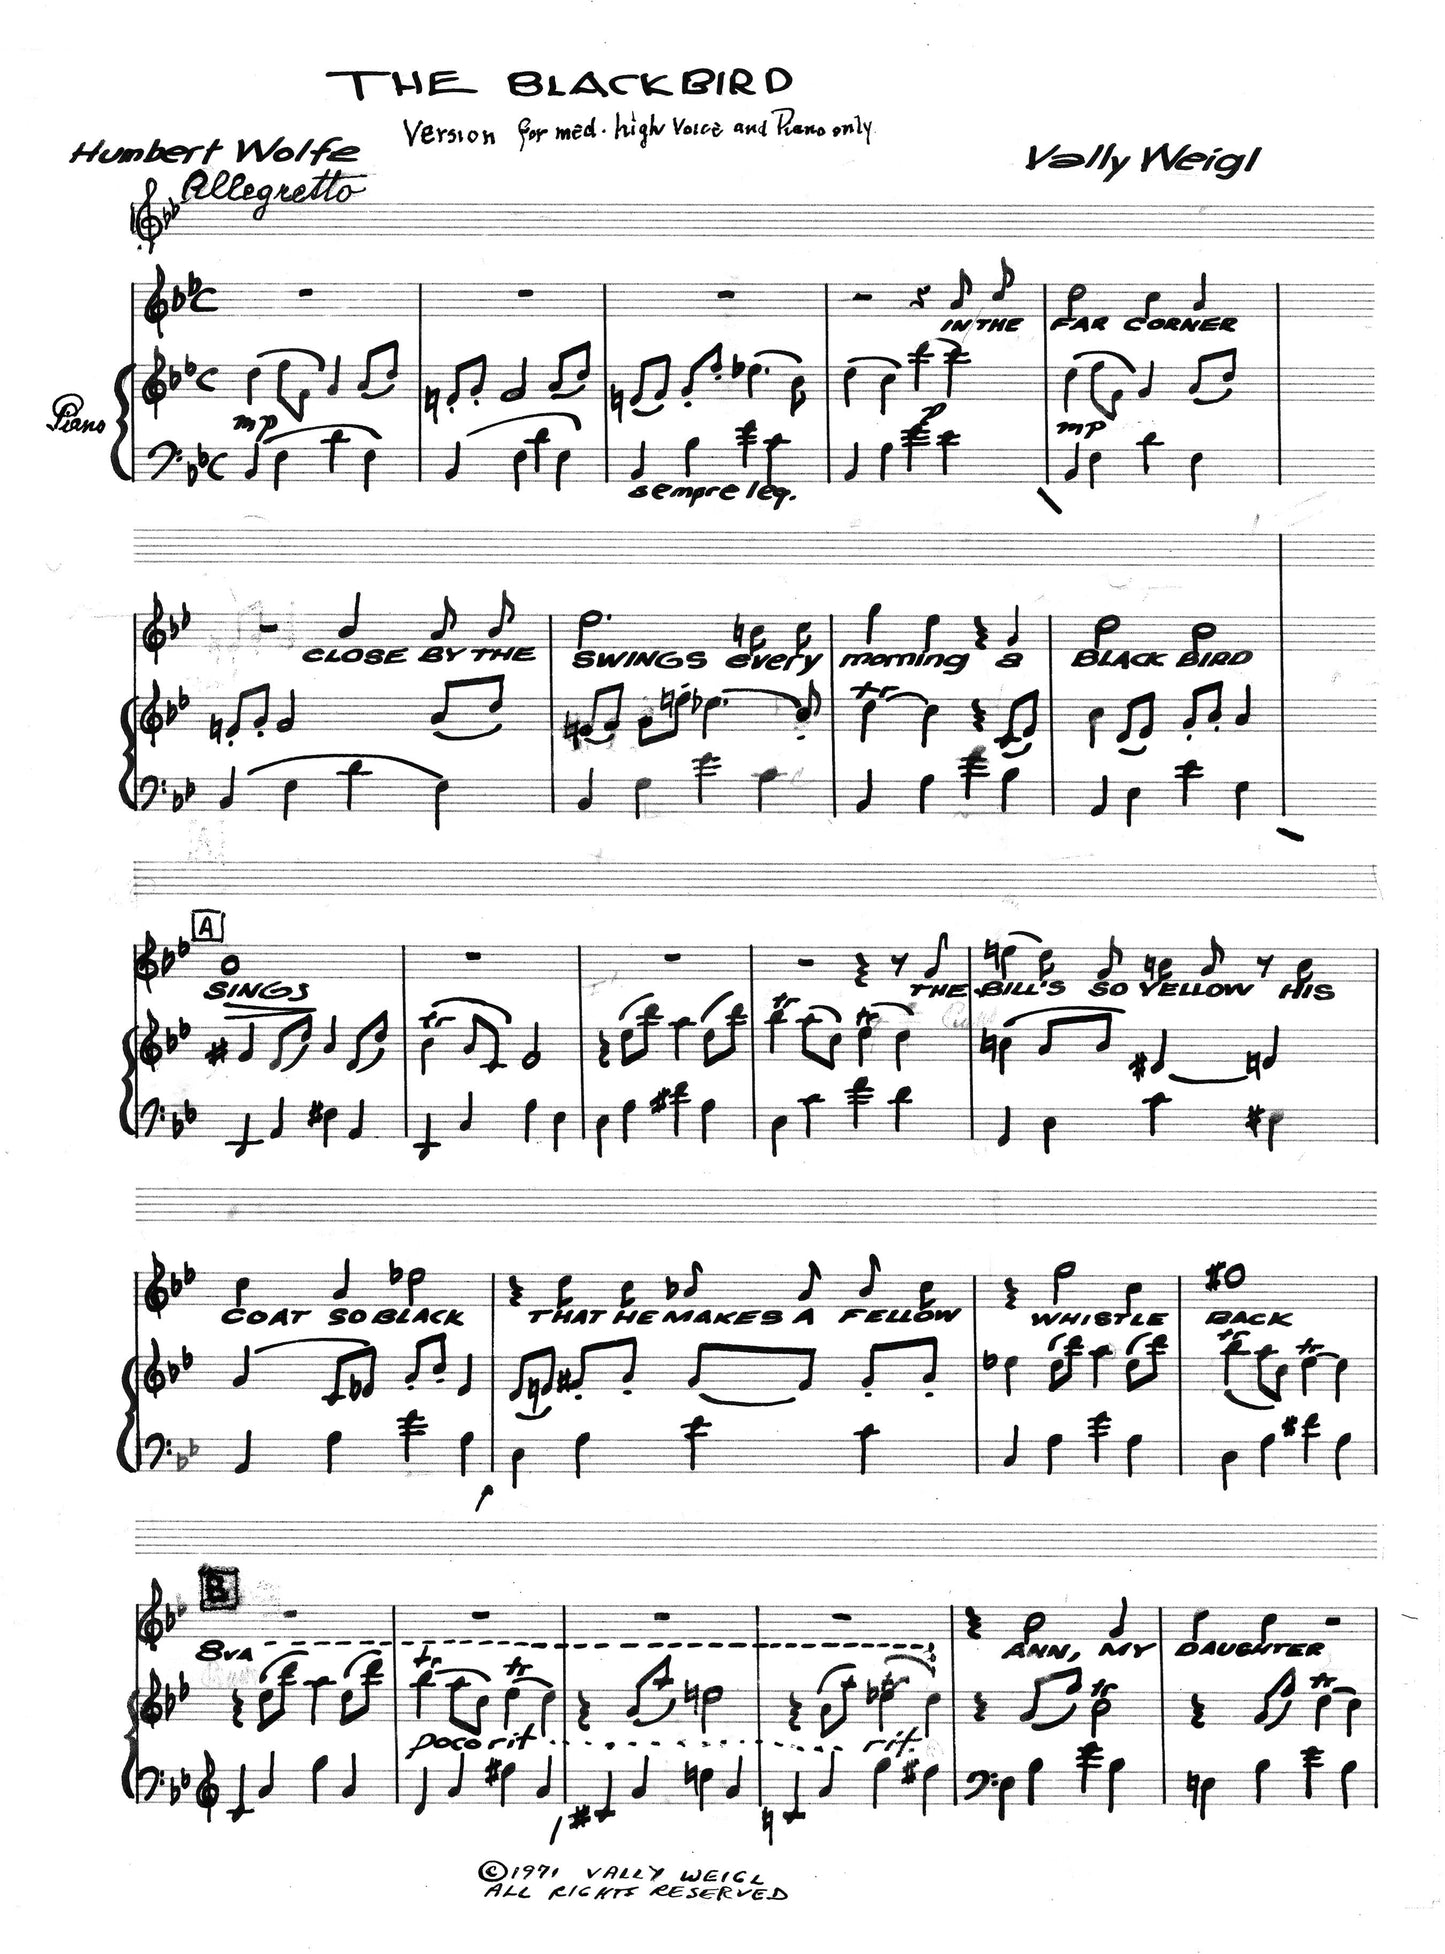 THE BLACKBIRD
Version for med. high Voice and Piano only
Humbert Wolfe
Vally Weigl
Allegretto
IN THE FAR CORNER
Piano
mp p mp
sempre leg.
CLOSE BY THE SWINGS every morning a BLACK BIRD
tr
A
SINGS THE BILL'S SO YELLOW HIS
tr tr tr
COAT SO BLACK THAT HE MAKES A FELLOW WHISTLE BACK
tr tr
B
8va
ANN, MY DAUGHTER
tr tr tr tr tr
poco rit. rit.
©1971 VALLY WEIGL
ALL RIGHTS RESERVED